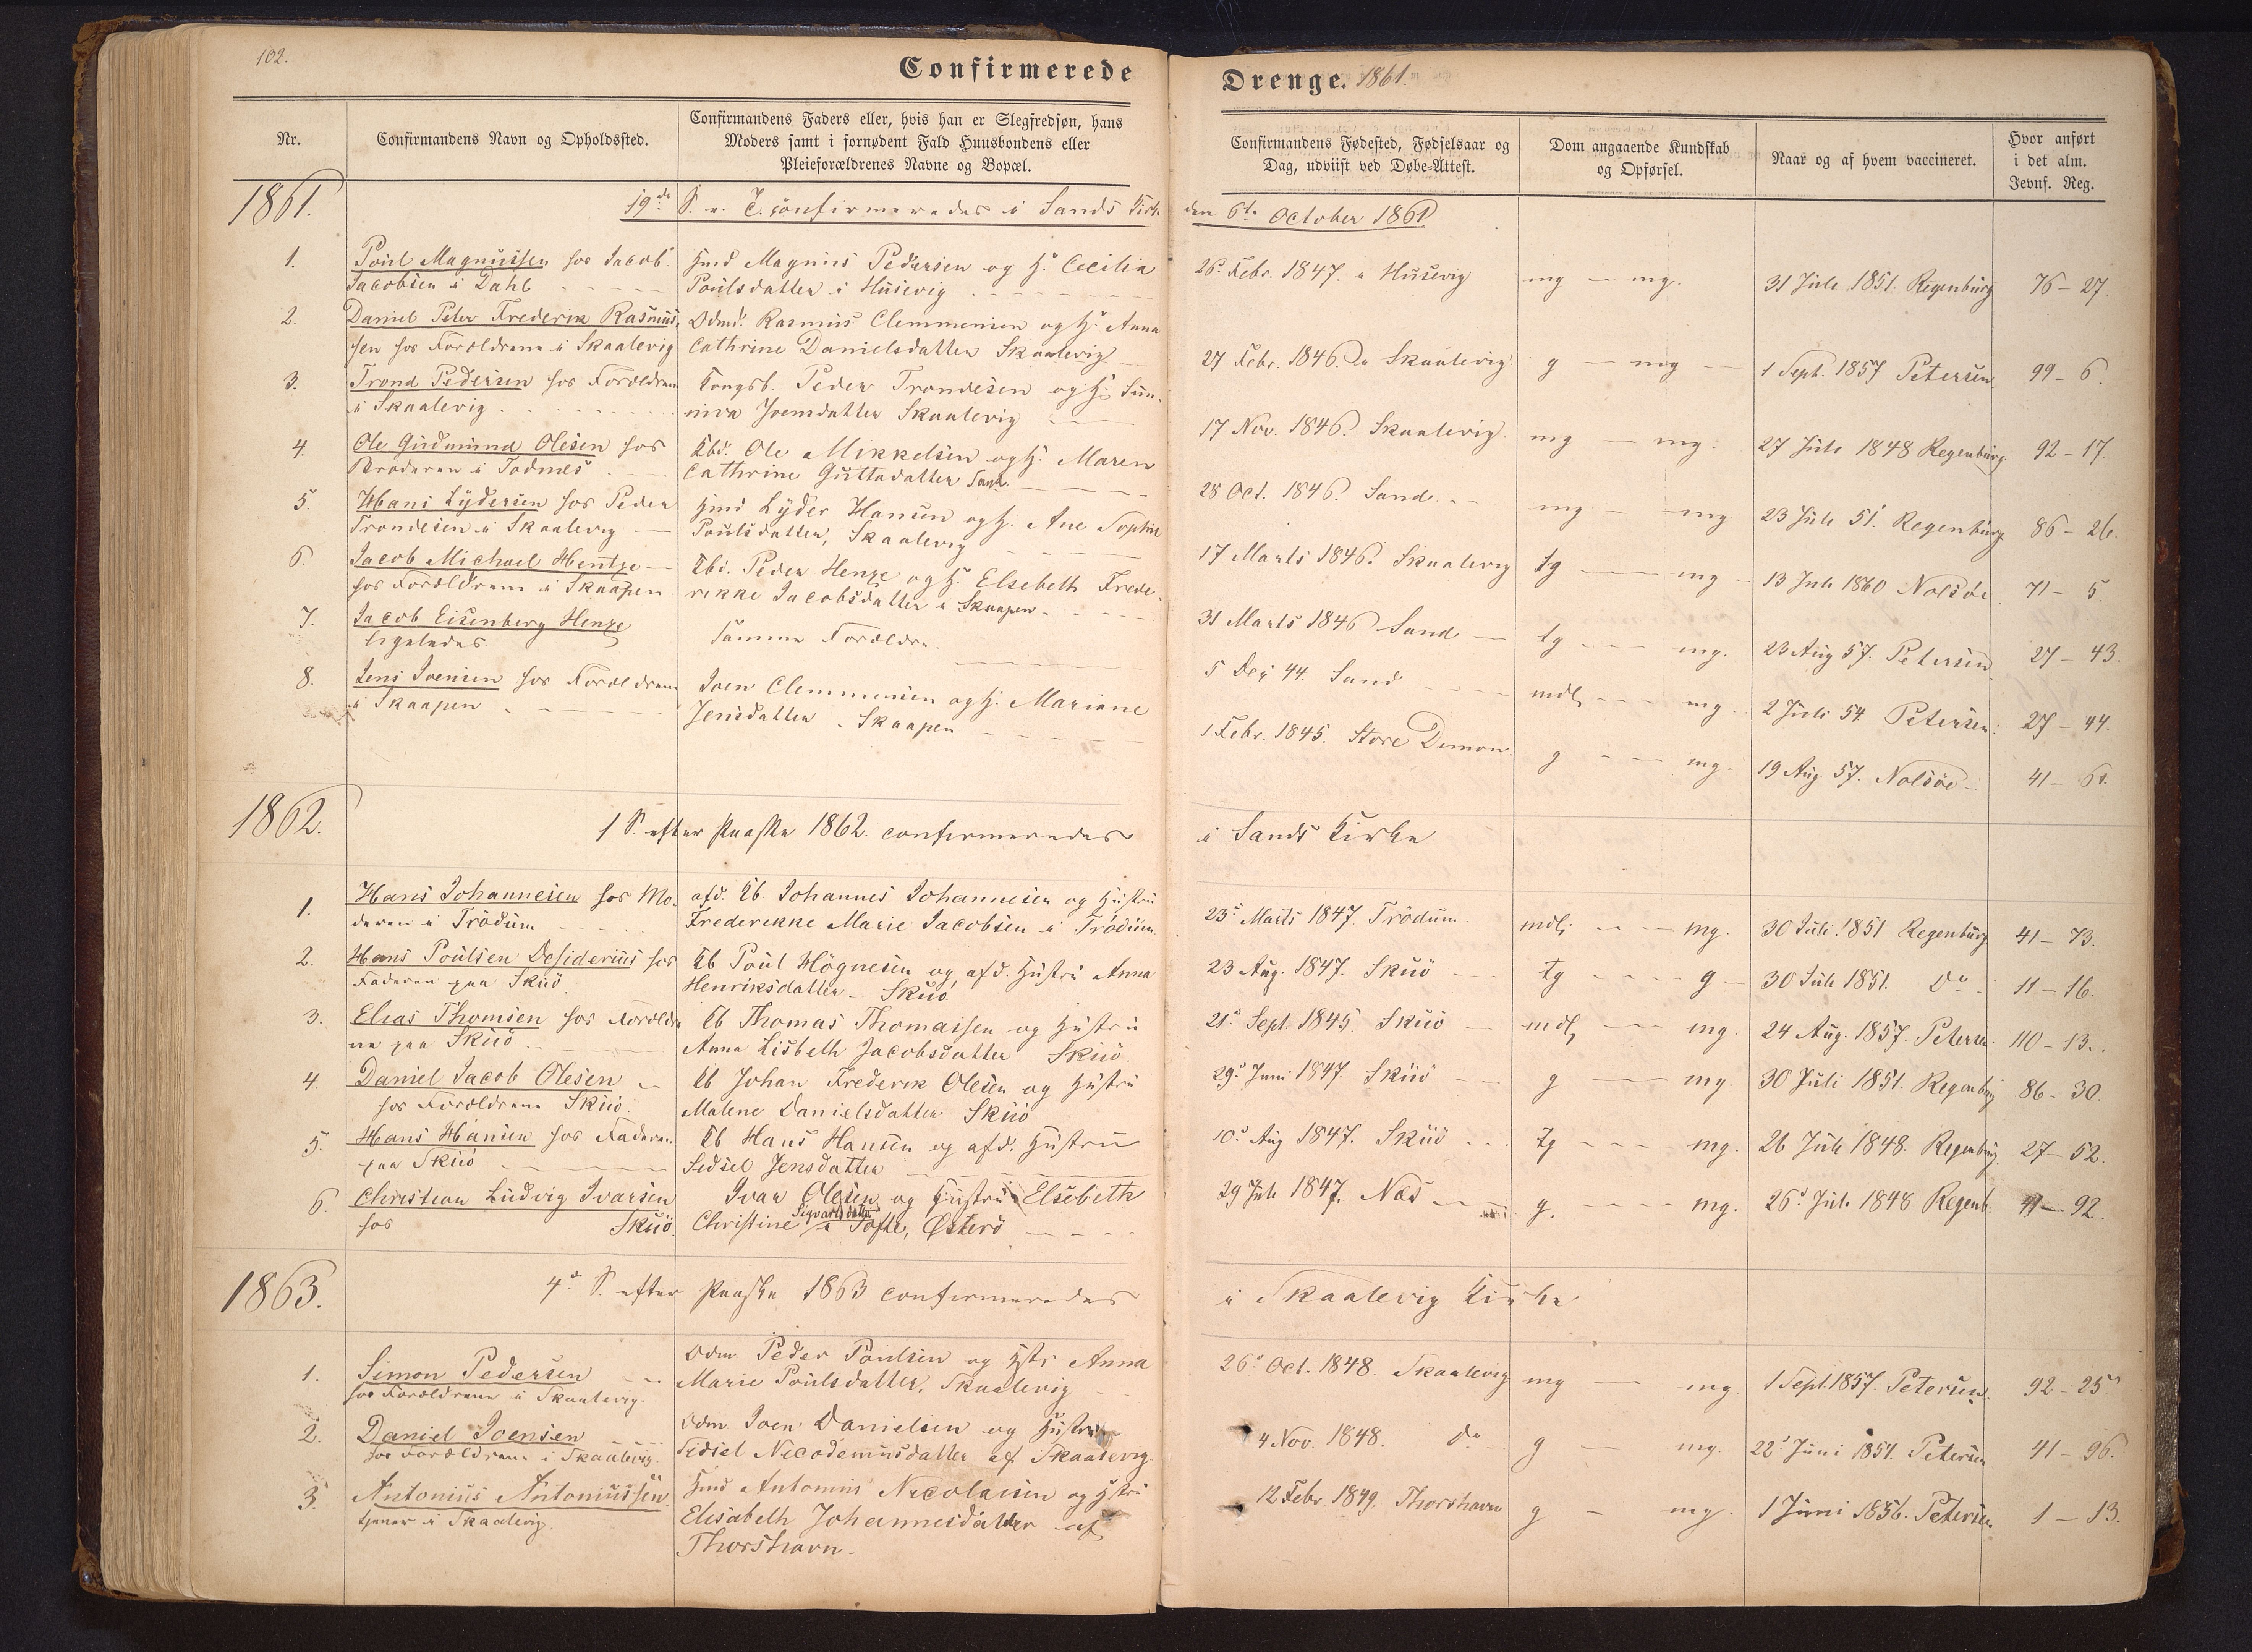 102.
Confirmerede
Nr.
Confirmandens Navn og Opholdssted.
Confirmandens Faders eller, hvis han er Slegfredsøn, hans
Moders samt i fornødent Fald Huusbondens eller
Pleieforældrenes Navne og Bopæl.
1861.
19de S. e. T. confirmeredes i Sands Kirke
1.
Poul Magnussen hos Jacob
Jacobsen i Dahl
Hmd Magnus Pedersen og H. Cecilia
Poulsdatter i Husevig
2.
Daniel Peter Frederik Rasmus-
sen hos Forældrene i Skaalevig
Odmd. Rasmus Clemmensen og H. Anna
Cathrine Danielsdatter Skaalevig
3.
Trond Pedersen hos Forældrene
i Skaalevig
Kongsb. Peder Trondesen og H. Sun-
niva Joensdatter Skaalevig
4.
Ole Gudmund Olesen hos
Broderen i Todnes
Kbd. Ole Mikkelsen og H. Maren
Cathrine Guttadatter Sand
5.
Hans Lydersen hos Peder
Trondesen i Skaalevig
Hmd Lyder Hansen og H. Ane Sophie
Poulsdatter, Skaalevig
6.
Jacob Michael Hentze
hos Forældrene i Skaapen
Kbd. Peder Henze og H. Elsebeth Frede-
rikke Jacobsdatter i Skaapen
7.
Jacob Eisenberg Henze
ligeledes.
Samme Forældre.
8.
Jens Joensen hos Forældrene
i Skaapen
Joen Clemmensen og H. Mariane
Jensdatter Skaapen
1862.
1 S. efter Paaske 1862. confirmeredes
1.
Hans Johannesen hos Mo-
deren i Trödum
afd. Kb. Johannes Johannesen og Hustru
Frederikke Marie Jacobsen i Trödum
2.
Hans Poulsen Desiderius hos
Faderen paa Skuö
Kb Poul Högnesen og afd. Hustru Anna
Henriksdatter Skuö
3.
Elias Thomsen hos Forældre
ne paa Skuö
Kb Thomas Thomassen og Hustru
Anna Lisbeth Jacobsdatter Skuö.
4.
Daniel Jacob Olesen
hos Forældrene Skuö.
Kb Johan Frederik Olesen og Hustru
Malene Danielsdatter Skuö
5.
Hans Hansen hos Faderen
paa Skuö
Kb Hans Hansen og afd. Hustru
Sedsel Jensdatter
6.
Christian Ludvig Ivarsen
hos Skuö.
Ivar Olesen og Hustru Elsebeth
Christine Sigvartsdatter i Tofte, Østerö
1863.
4de S. efter Paaske 1863 confirmeredes
1.
Simon Pedersen
hos Forældrene i Skaalevig.
Odm Peder Poulsen og Hstr Anna
Marie Poulsdatter, Skaalevig
2.
Daniel Joensen
hos Forældrene i Skaalevig.
Odm Joen Danielsen og Hustru
Sedsel Nicodemusdatter af Skaalevig
3.
Antonius Antoniussen
tjener i Skaalevig.
Hmd Antonius Nicolaisen og Hstru
Elisabeth Johannesdatter af
Thorshavn.
Drenge. 1861.
Confirmandens Fødested, Fødselsaar og
Dag, udviist ved Døbe-Attest.
Dom angaaende Kundskab
og Opførsel.
Naar og af hvem vaccineret.
Hvor anført
i det alm.
Jevnf. Reg.
den 6te October 1861
26. Febr. 1847. i Husevig mg — mg. 31 Juli 1851. Regenburg 76 - 27.
27 Febr. 1846. i Skaalevig g — mg 1 Sept. 1857 Petersen 99 - 6.
17 Nov. 1846. Skaalevig. mg — mg. 27 Juli 1848 Regenburg 92 - 17.
28 Oct. 1846. Sand mg — mg 23 Juli 51. Regenburg 86 - 26.
17 Marts 1846. Skaalevig tg — mg 13 Juli 1860 Nolsöe 71 - 5.
31 Marts 1846 Sand tg — mg. 23 Aug 57. Petersen 27 - 43.
5 Dec 44. Sand mdl — mg. 2 Juli 54. Petersen 27 - 44.
1 Febr. 1845. Store Dimon g — mg. 19 Aug. 57. Nolsöe 41 - 61.
i Sands Kirke
23. Marts 1847. Trödum. mdl — mg. 30 Juli 1851 Regenburg 41 - 73.
23 Aug. 1847. Skuö tg — g 30 Juli 1851. Do 11 - 16.
21. Sept. 1845. Skuö mdl — mg. 24 Aug. 1857. Petersen 110 - 13.
29. Juni 1847. Skuö g — mg. 30 Juli 1851. Regenburg 86 - 30.
10. Aug 1847. Skuö tg — mg. 26 Juli 1848. Regenburg 27 - 52.
29 Juli 1847. Nes g. — mg. 26. Juli 1848 Regenb. 41 - 92.
i Skaalevig Kirke
26. Oct. 1848. Skaalevig mg — mg. 1 Sept. 1857. Petersen. 92 - 25.
4 Nov. 1848. do g — mg. 22. Juni 1854. Petersen 41 - 96.
12 Febr 1849. Thorshavn g — mg. 1 Juni 1856. Petersen 1 - 13.